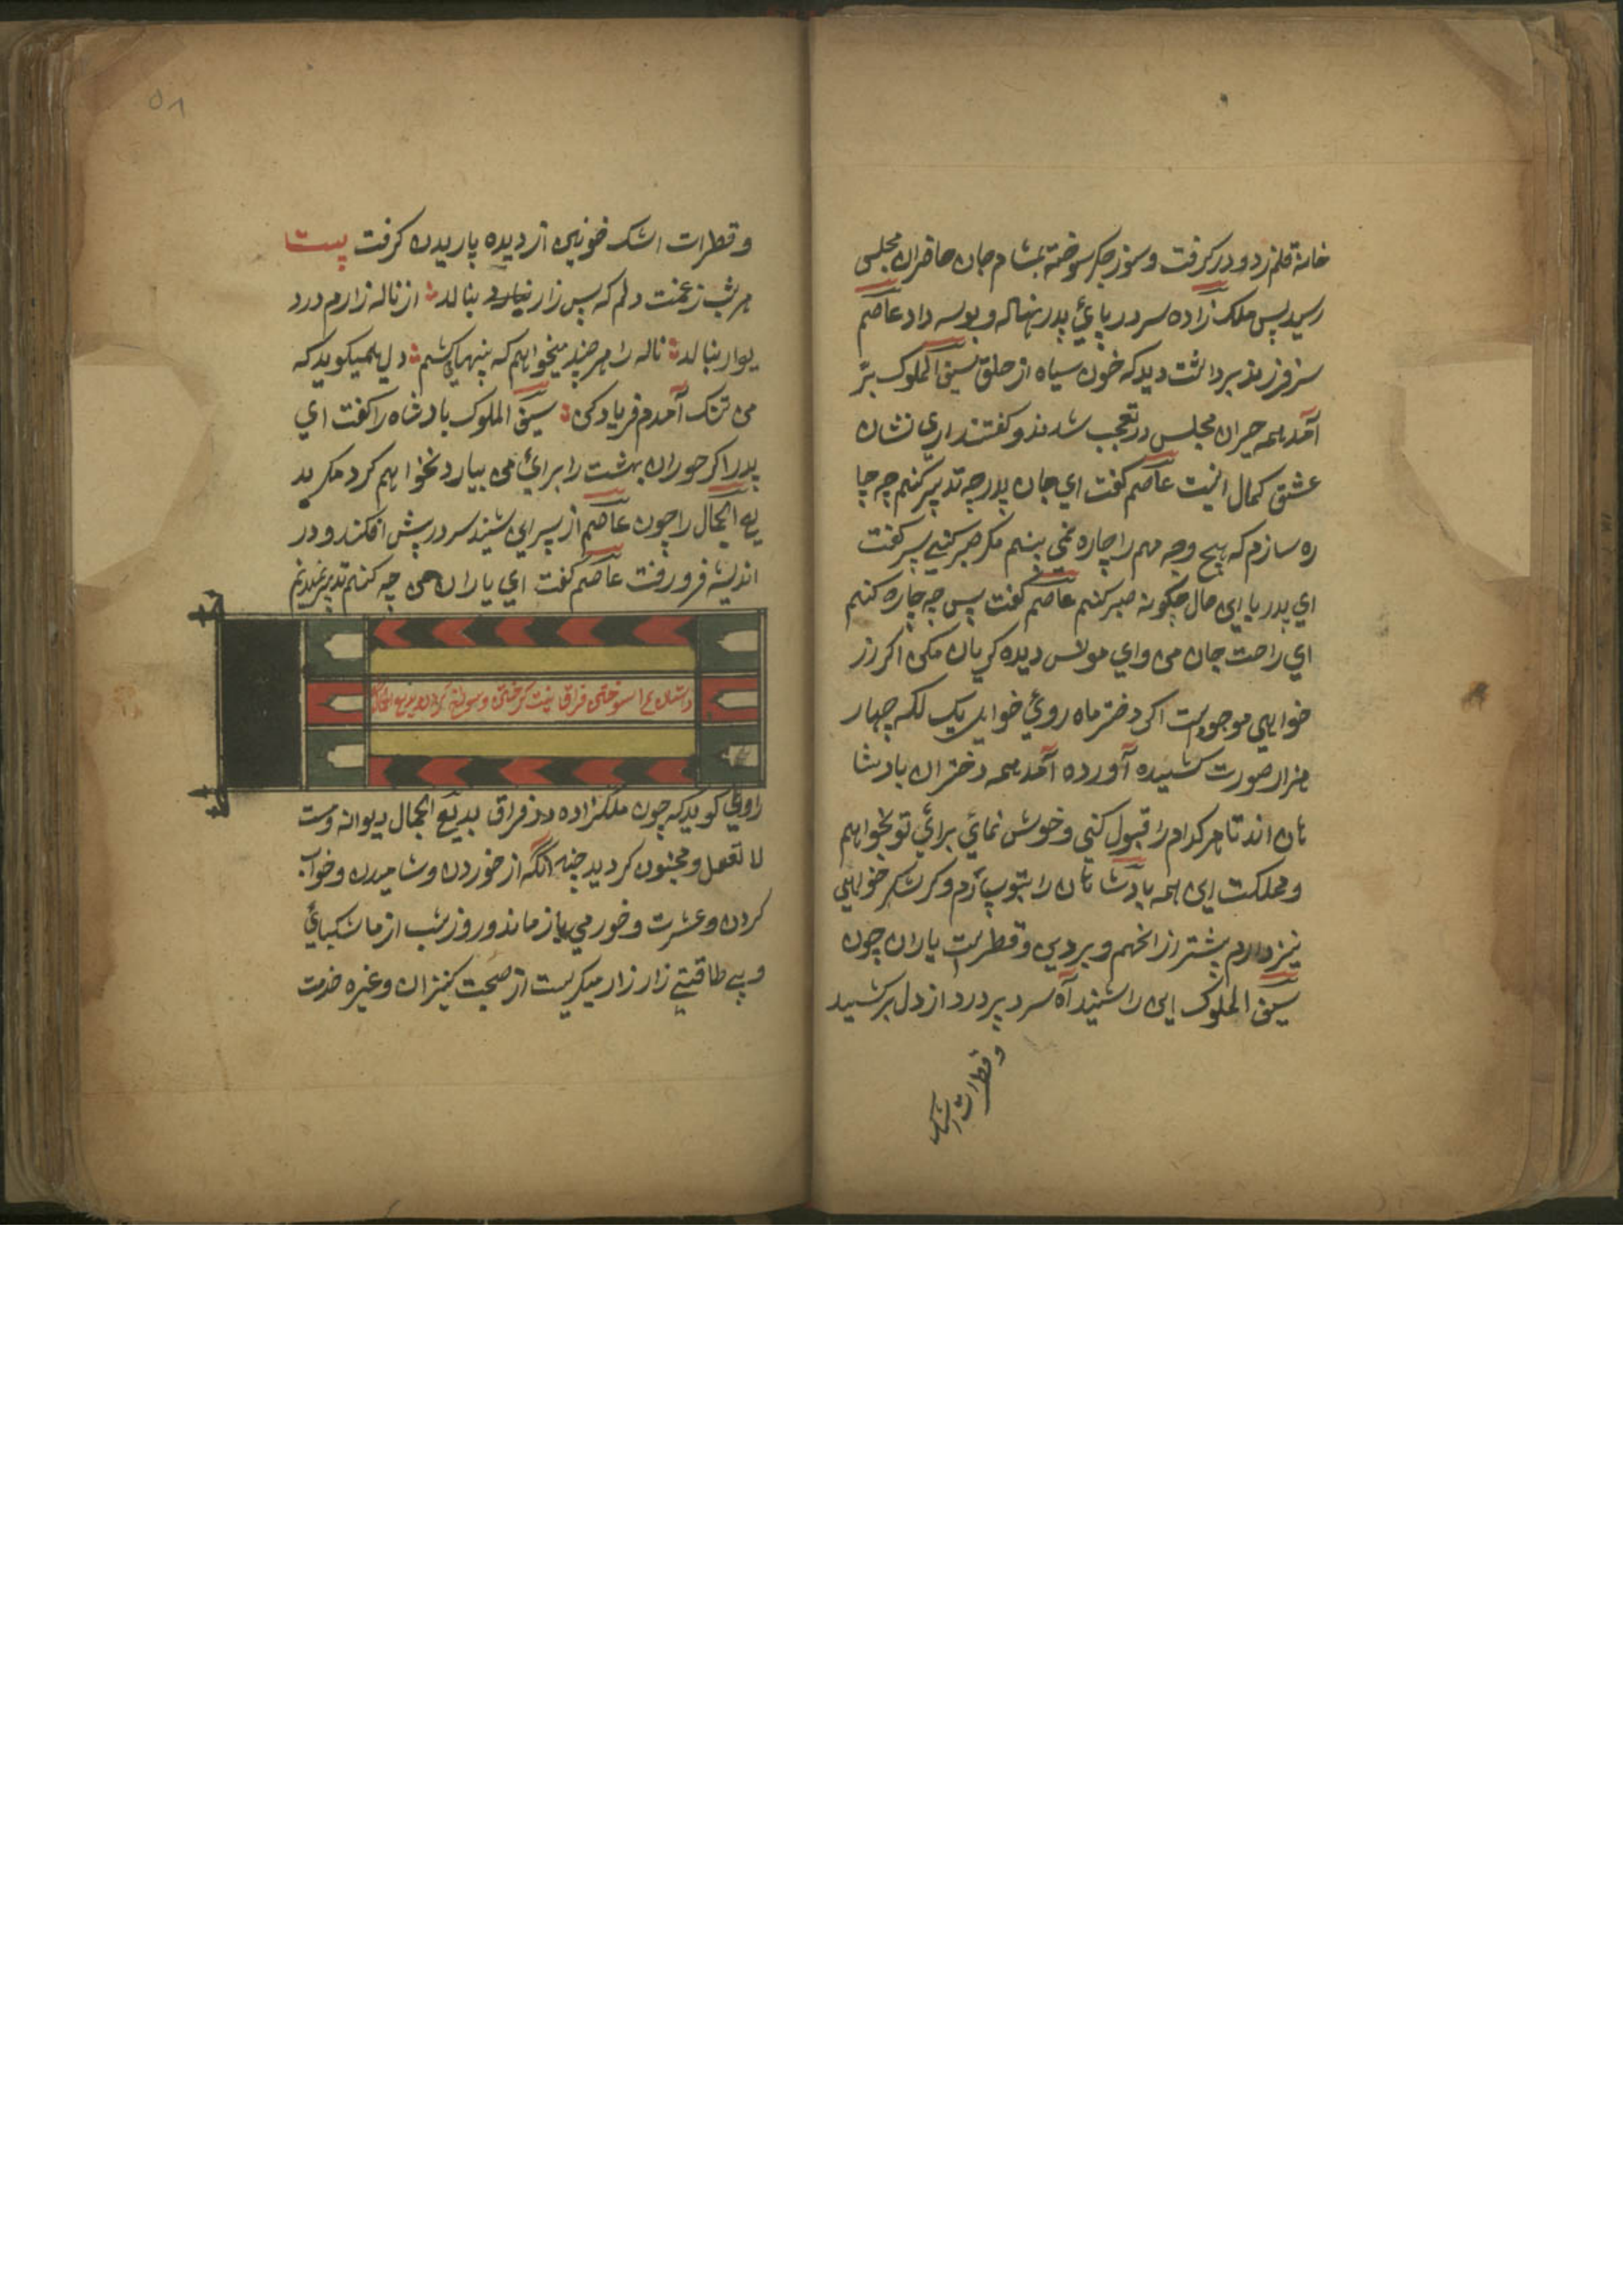 خانهٔ قلم زد و در کرفت و سوز جکر سوخته بمشام جان حاضران مجلس
رسید پس ملک زاده سر در پائ پدر نهاله و بوسه داد عاصم
سر فرزند برداشت دید که خون سیاه از حلق سیف الملوک بر
آمد همه حیران مجلس در تعجب شدند و کفتند اری نشان
عشق کمال اینست عاصم کفت ای جان پدر چه تدبیر کنم چه چا
ره سازم که هیچ وجه مهم را چاره نمی بینم مکر صبر کنی پسر کفت
ای پدر با این حال چکونه صبر کنم عاصم کفت پس چه چاره کنم
ای راحت جان من وای مونس دیده کریان مکن اکر زر
خواهی موجودست اکر دختر ماه روئ خواهی یک لک چهار
هزار صورت کشیده آورده آمد همه دختران بادشا
هان اند تا هر کدام را قبول کنی و خوش نمائ برائ تو بخواهم
و مملکت این همه بادشاهان را بتو سپارم و کر لشکر خواهی
نیز دارم بیشتر از انجم و بردین و قطرست یاران چون
سیف الملوک این را شنید آه سرد پر درد از دل برکشید
و قطرات اشک
۵۸
و قطرات اشک خونین از دیده باریدن کرفت بیت
هر شب ز غمت دلم که بس زار بنالد از ناله زارم در د
یوار بنالد ناله را هر چند میخواهم که پنهان کشم دل همیکوید که
من تنک آمدم فریاد کن سیف الملوک بادشاه را کفت ای
پدر اکر حوران بهشت را برائ من بیارد نخواهم کرد مکر بد
یع الجمال را چون عاصم از پسر این شنید سر در پیش افکند و در
اندیشه فرو رفت عاصم کفت ای یاران من چه کنم تدبیر نمیدانم
داستان سوختن فراق
راوی کوید که چون ملکزاده در فراق بدیع الجمال دیوانه و مست
لا تعقل و مجنون کردید چنانکه از خوردن و شامیدن و خواب
کردن و عشرت و خورمی باز ماند و روز شب از ما شکیبائ
و بی طاقتی زار زار میکریست از صحبت کنیزان و غیره خدمت